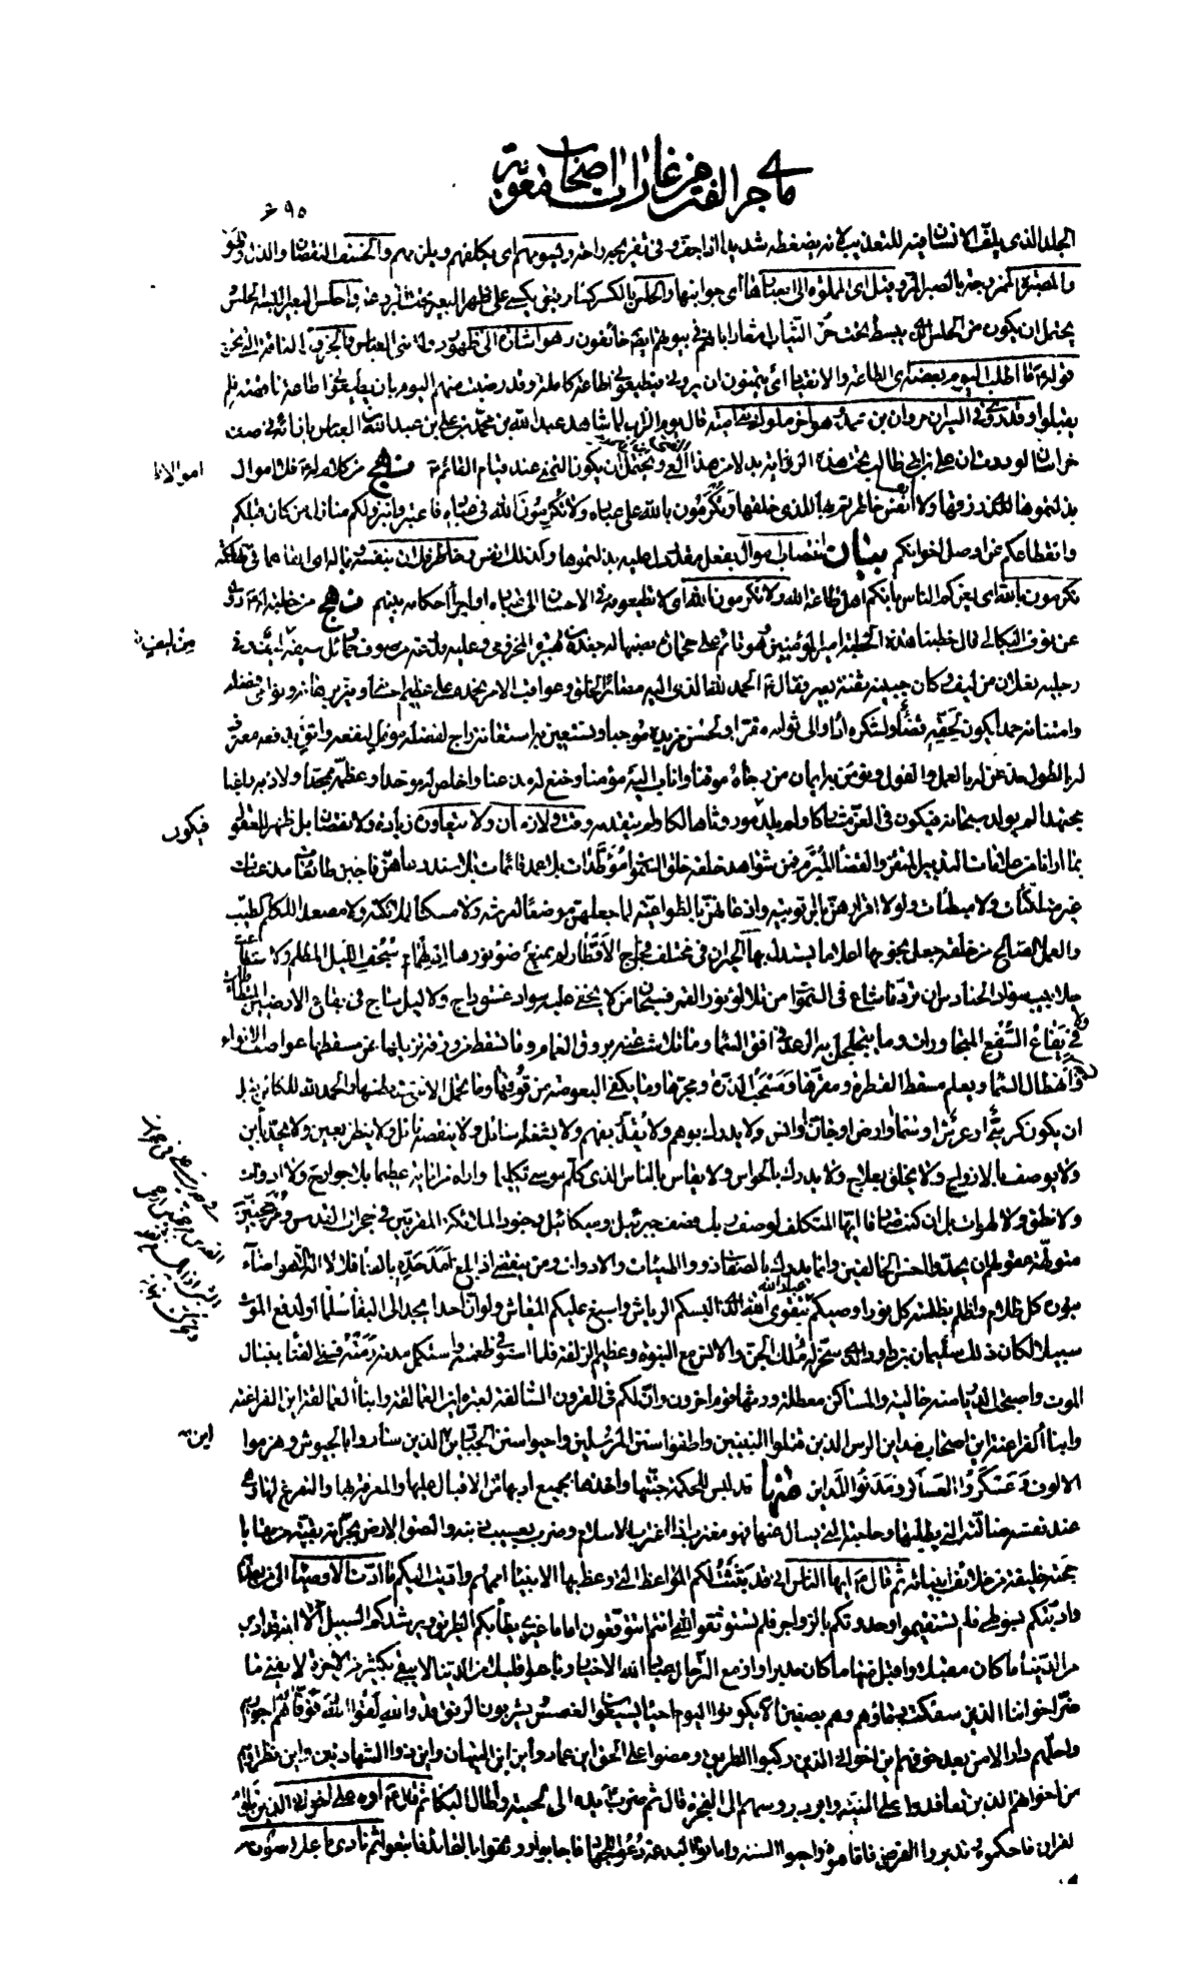 ما جرى الفتن من غارات اصحاب معوية
۶۹۵
الجلد الذي يلف الانسان فيه للتعذيب لانه يضغطه شديدا اذا جف ويسومهم اي يكلفهم ويلزمهم والخسف النقصان والذل
والمصبرة الممزوجة بالصبر المر وقيل اي المملوة الى اصبارها اي جوانبها والحلس بالكسر كساء رقيق يكسى على ظهر البعير تحت البردعة
يحتمل ان يكون من الحلس الذي يبسط تحت حر الثياب وهو اشارة الى ظهور دولة بني العباس والجزور الناقة التي تجزر
قوله ما اطلب اليوم بعضه اي الطاعة والانقياد اي يتمنون ان يروني فيطيعوني اطاعة كاملة وقد رضيت منهم اليوم بان يطيعوني اطاعة ناقصة فلم
يقبلوا وقد روي في السير ان مروان بن محمد وهو اخر ملوك بني امية قال يوم الزاب لما شاهد عبد الله بن محمد بن علي بن عبد الله بن العباس بازائه في صف
خراسان لوددت ان علي بن ابي طالب تحت هذه الراية بدلا من هذا الفتى ويحتمل ان يكون التمني عند قيام القائم ع نهج من كلام له ع فلا اموال
اموال لا
بذلتموها للذي رزقها ولا انفس خاطرتم بها للذي خلقها تكرمون بالله على عباده ولا تكرمون الله في عباده فاعتبروا بنزولكم منازل من كان قبلكم
وانقطاعكم عن اوصل اخوانكم بيان انتصاب اموال بفعل مقدر دل عليه بذلتموها وكذلك انفس وخاطر فلان بنفسه وماله اي القاهما في الهلكة
تكرمون بالله اي يعزكم الناس بانكم اهل طاعة الله ولا تكرمون الله اي لا تطيعونه في الاحسان الى عباده او اجراء احكامه بينهم نهج من خطبة له ع روي
عن نوف البكالي قال خطبنا هذه الخطبة امير المؤمنين وهو قائم على حجارة نصبها له جعدة بن هبيرة المخزومي وعليه مدرعة من صوف وحمائل سيفه ليف وفي
من ليف
رجليه نعلان من ليف وكان جبينه ثفنة بعير فقال ع الحمد لله الذي اليه مصائر الخلق وعواقب الامر نحمده على عظيم احسانه ونير برهانه ونوامي فضله
وامتنانه حمدا يكون لحقه قضاء ولشكره اداء والى ثوابه مقربا ولحسن مزيده موجبا ونستعين به استعانة راج لفضله مؤمل لنفعه واثق بدفعه معترف
له بالطول مذعن له بالعمل والقول ونؤمن به ايمان من رجاه موقنا واناب اليه مؤمنا وخنع له مذعنا واخلص له موحدا وعظمه ممجدا ولاذ به راغبا
مجتهدا لم يولد سبحانه فيكون في العز مشاركا ولم يلد فيكون موروثا هالكا ولم يتقدمه وقت ولا زمان ولا يتعاوره زيادة ولا نقصان بل ظهر للعقول
فيكون
بما ارانا من علامات التدبير المتقن والقضاء المبرم فمن شواهد خلقه خلق السموات موطدات بلا عمد قائمات بلا سند دعاهن فاجبن طائعات مذعنات
غير متلكئات ولا مبطئات ولولا اقرارهن له بالربوبية واذعانهن له بالطواعية لما جعلهن موضعا لعرشه ولا مسكنا لملائكته ولا مصعدا للكلم الطيب
والعمل الصالح من خلقه جعل نجومها اعلاما يستدل بها الحيران في مختلف فجاج الاقطار لم يمنع ضوء نورها ادلهمام سجف الليل المظلم ولا استطاعت
جلابيب سواد الحنادس ان ترد ما شاع في السموات من تلألؤ نور القمر فسبحان من لا يخفى عليه سواد غسق داج ولا ليل ساج في بقاع الارضين المتطأطئات
ولا في يفاع السفع المتجاورات وما يتجلجل به الرعد في افق السماء وما تلاشت عنه بروق الغمام وما تسقط من ورقة تزيلها عن مسقطها عواصف الانواء
وانهطال السماء ويعلم مسقط القطرة ومقرها ومسحب الذرة ومجرها وما يكفي البعوضة من قوتها وما تحمل الانثى في بطنها والحمد لله الكائن قبل
ان يكون كرسي او عرش او سماء او ارض او جان او انس ولا يدرك بوهم ولا يقدر بفهم ولا يشغله سائل ولا ينقصه نائل ولا ينظر بعين ولا يحد باين
ولا يوصف بالازواج ولا يخلق بعلاج ولا يدرك بالحواس ولا يقاس بالناس الذي كلم موسى تكليما واراه من اياته عظيما بلا جوارح ولا ادوات
ولا نطق ولا لهوات بل ان كنت صادقا ايها المتكلف لوصف ربك فصف جبرئيل وميكائيل وجنود الملائكة المقربين في حجرات القدس مرجحنين
متولهة عقولهم ان يحدوا احسن الخالفين وانما يدرك بالصفات ذوو الهيئات والادوات ومن ينقضي اذا بلغ امد حده بالفناء فلا اله الا هو اضاء
بنوره كل ظلام واظلم بظلمته كل نور اوصيكم عباد الله بتقوى الله الذي البسكم الرياش واسبغ عليكم المعاش ولو ان احدا يجد الى البقاء سلما او لدفع الموت
سبيلا لكان ذلك سليمان بن داود الذي سخر له ملك الجن والانس مع النبوة وعظيم الزلفة فلما استوفى طعمته واستكمل مدته رمته قسي الفناء بنبال
الموت واصبحت الديار منه خالية والمساكن معطلة ورثها قوم اخرون وان لكم في القرون السالفة لعبرة اين العمالقة وابناء العمالقة اين الفراعنة
وابناء الفراعنة اين اصحاب مدائن الرس الذين قتلوا النبيين واطفئوا سنن المرسلين واحيوا سنن الجبارين اين الذين ساروا بالجيوش وهزموا
اين
الالوف وعسكروا العساكر ومدنوا المدائن منها قد لبس للحكمة جنتها واخذها بجميع ادبها من الاقبال عليها والمعرفة بها والتفرغ لها وهي
عند نفسه ضالته التي يطلبها وحاجته التي يسال عنها فهو مغترب اذا اغترب الاسلام وضرب بعسيب ذنبه والصق الارض بجرانه بقية من بقايا
حجته خليفة من خلائف انبيائه ثم قال ع ايها الناس اني قد بثثت لكم المواعظ التي وعظ بها الانبياء اممهم واديت اليكم ما ادت الاوصياء الى من بعدهم
وادبتكم بسوطي فلم تستقيموا وحدوتكم بالزواجر فلم تستوثقوا لله انتم اتتوقعون اماما غيري يطأ بكم الطريق ويرشدكم السبيل الا انه قد ادبر
من الدنيا ما كان مقبلا واقبل منها ما كان مدبرا وازمع الترحال عباد الله الاخيار وباعوا قليلا من الدنيا لا يبقى بكثير من الاخرة لا يفنى ما
ضر اخواننا الذين سفكت دماؤهم وهم بصفين الا يكونوا اليوم احياء يسيغون الغصص ويشربون الرنق قد والله لقوا الله فوفاهم اجورهم
واحلهم دار الامن بعد خوفهم اين اخواني الذين ركبوا الطريق ومضوا على الحق اين عمار واين ابن التيهان واين ذو الشهادتين واين نظراؤهم
من اخوانهم الذين تعاقدوا على المنية وابرد برءوسهم الى الفجرة قال ثم ضرب يده الى لحيته واطال البكاء ثم قال ع اوه على اخواني الذين تلوا
القران فاحكموه وتدبروا الفرض فاقاموه واحيوا السنة واماتوا البدعة دعوا للجهاد فاجابوا ووثقوا بالقائد فاتبعوا ثم نادى باعلى صوته